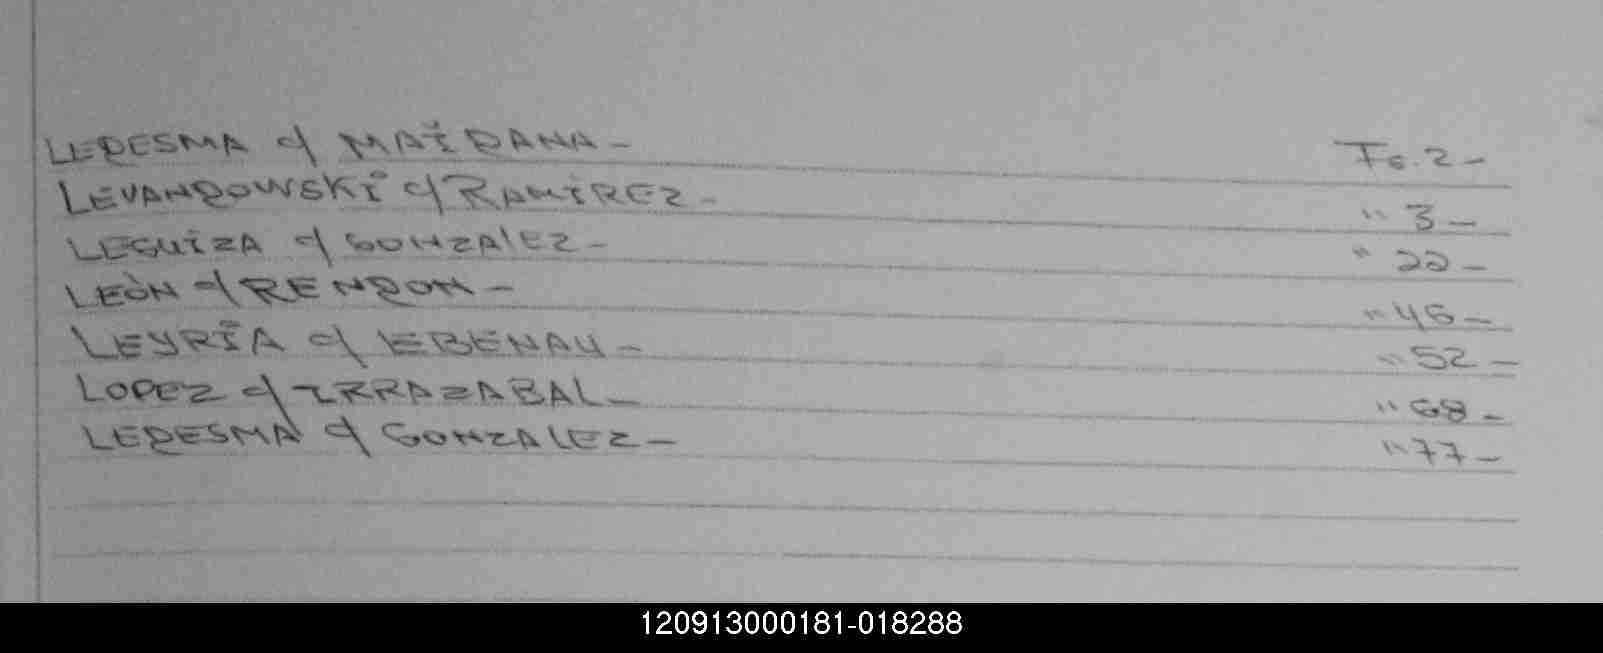 LEDESMA c/ MAIDANA - Fo. 2 -
LEVANDOWSKI c/ RAMIREZ - " 3 -
LEGUIZA c/ GONZALEZ - " 22 -
LEÒN c/ RENDON - " 46 -
LEYRIA c/ EBENAU - " 52 -
LOPEZ c/ IRRAZABAL - " 68 -
LEDESMA c/ GONZALEZ - " 77 -
120913000181-018288